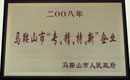 二〇〇八年
马鞍山市“专、精、特、新”企业
马鞍山市人民政府